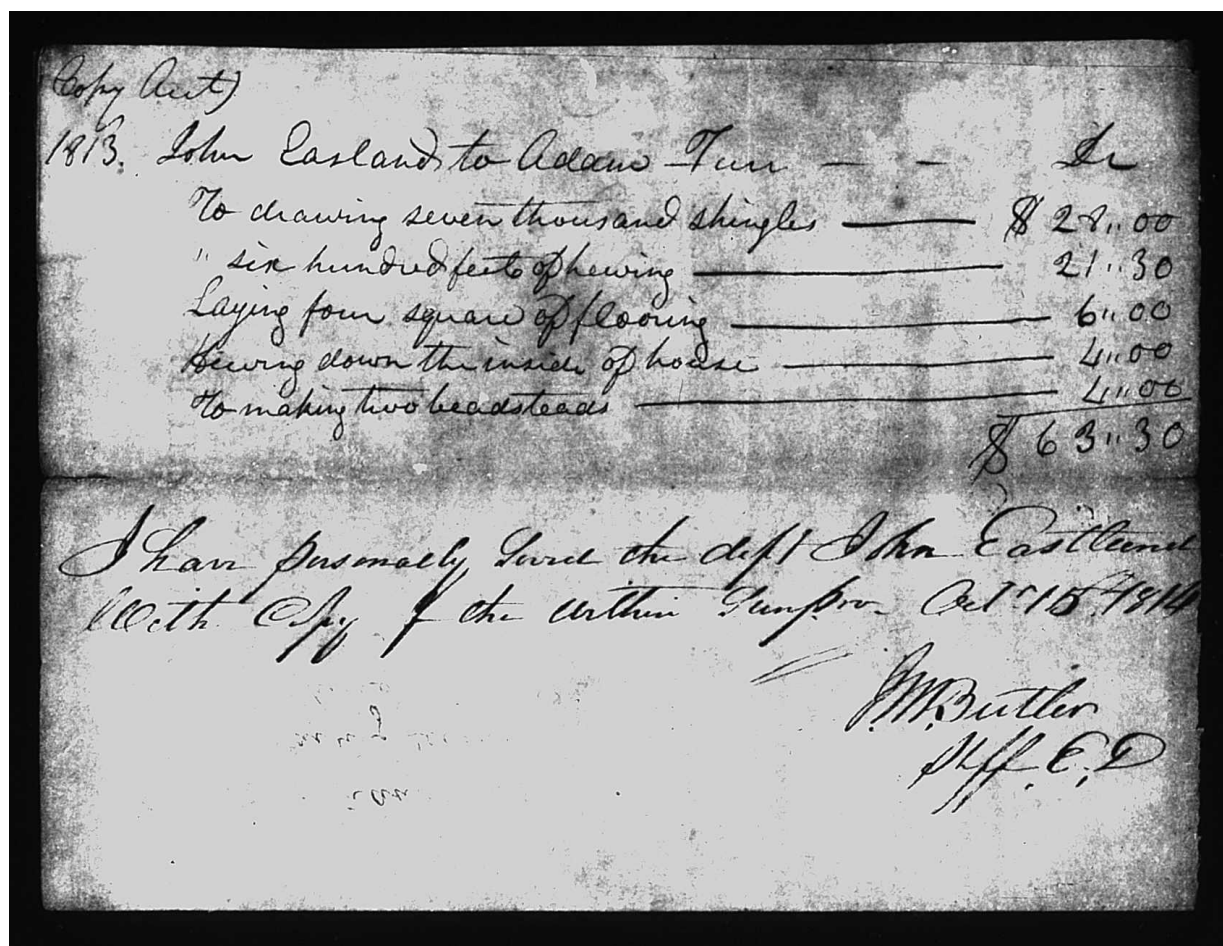 Copy Acct)
1813. John Easland to Adam Turr — — Dr
To drawing seven thousand shingles —— $ 28,,00
" six hundred feet of hewing —— 21,,30
Laying four square of flooring —— 6,,00
Hewing down the inside of house —— 4,,00
To making two beadsteads —— 4,,00
$ 63,,30
I have personally Served the deft John Eastland
With Copy of the within Summons Octr 15th 1814
J.W. Butler
Shff. C. D